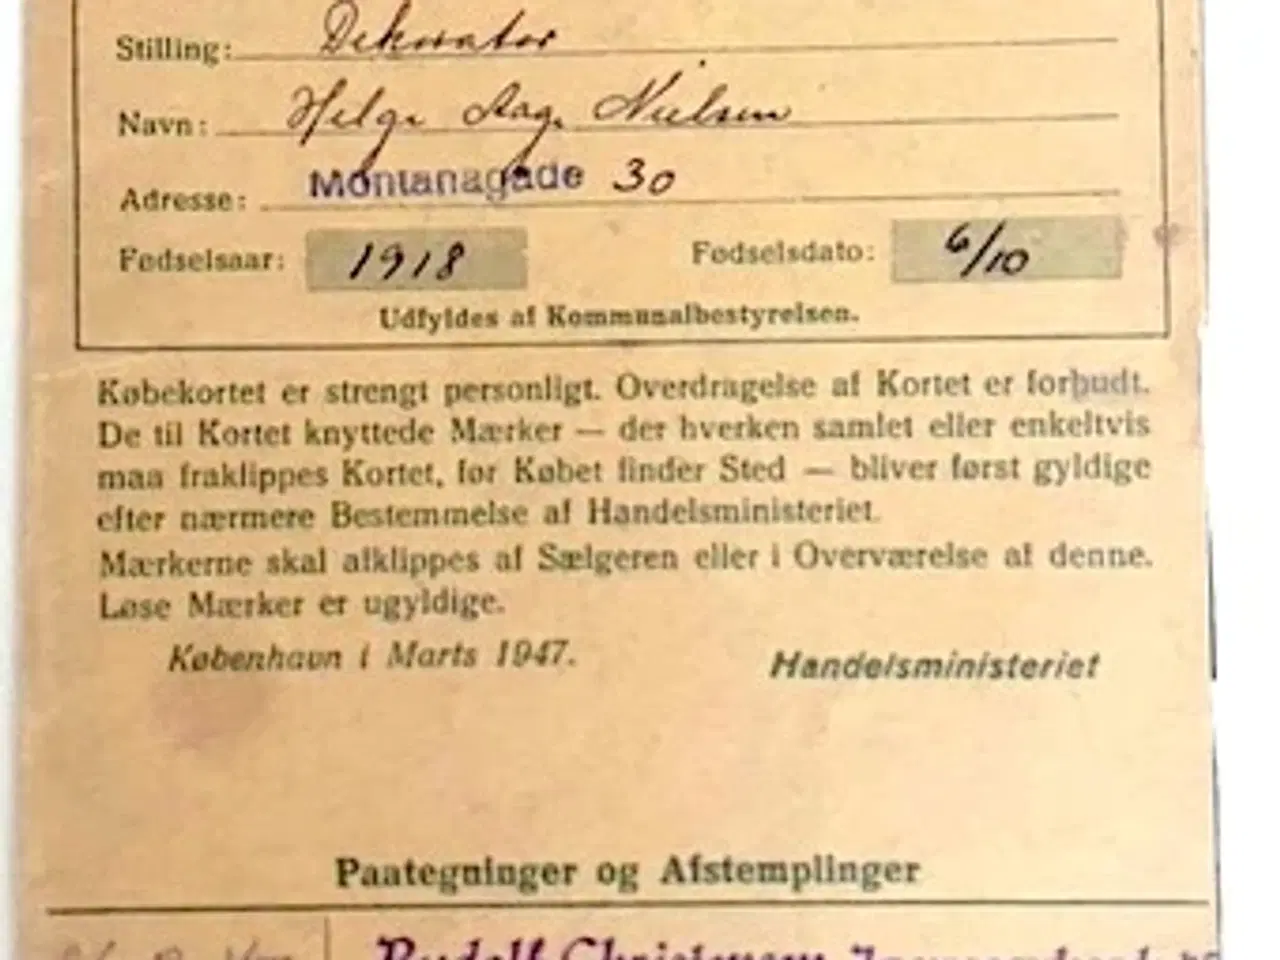 Stilling: Dekoratør
Navn: Helge Aage Nielsen
Adresse: Montanagade 30
Fødselsaar: 1918 Fødselsdato: 6/10
Udfyldes af Kommunalbestyrelsen.
Købekortet er strengt personligt. Overdragelse af Kortet er forbudt.
De til Kortet knyttede Mærker — der hverken samlet eller enkeltvis
maa fraklippes Kortet, før Købet finder Sted — bliver først gyldige
efter nærmere Bestemmelse af Handelsministeriet.
Mærkerne skal afklippes af Sælgeren eller i Overværelse af denne.
Løse Mærker er ugyldige.
København i Marts 1947.
Handelsministeriet
Paategninger og Afstemplinger
Rudolf Christensen